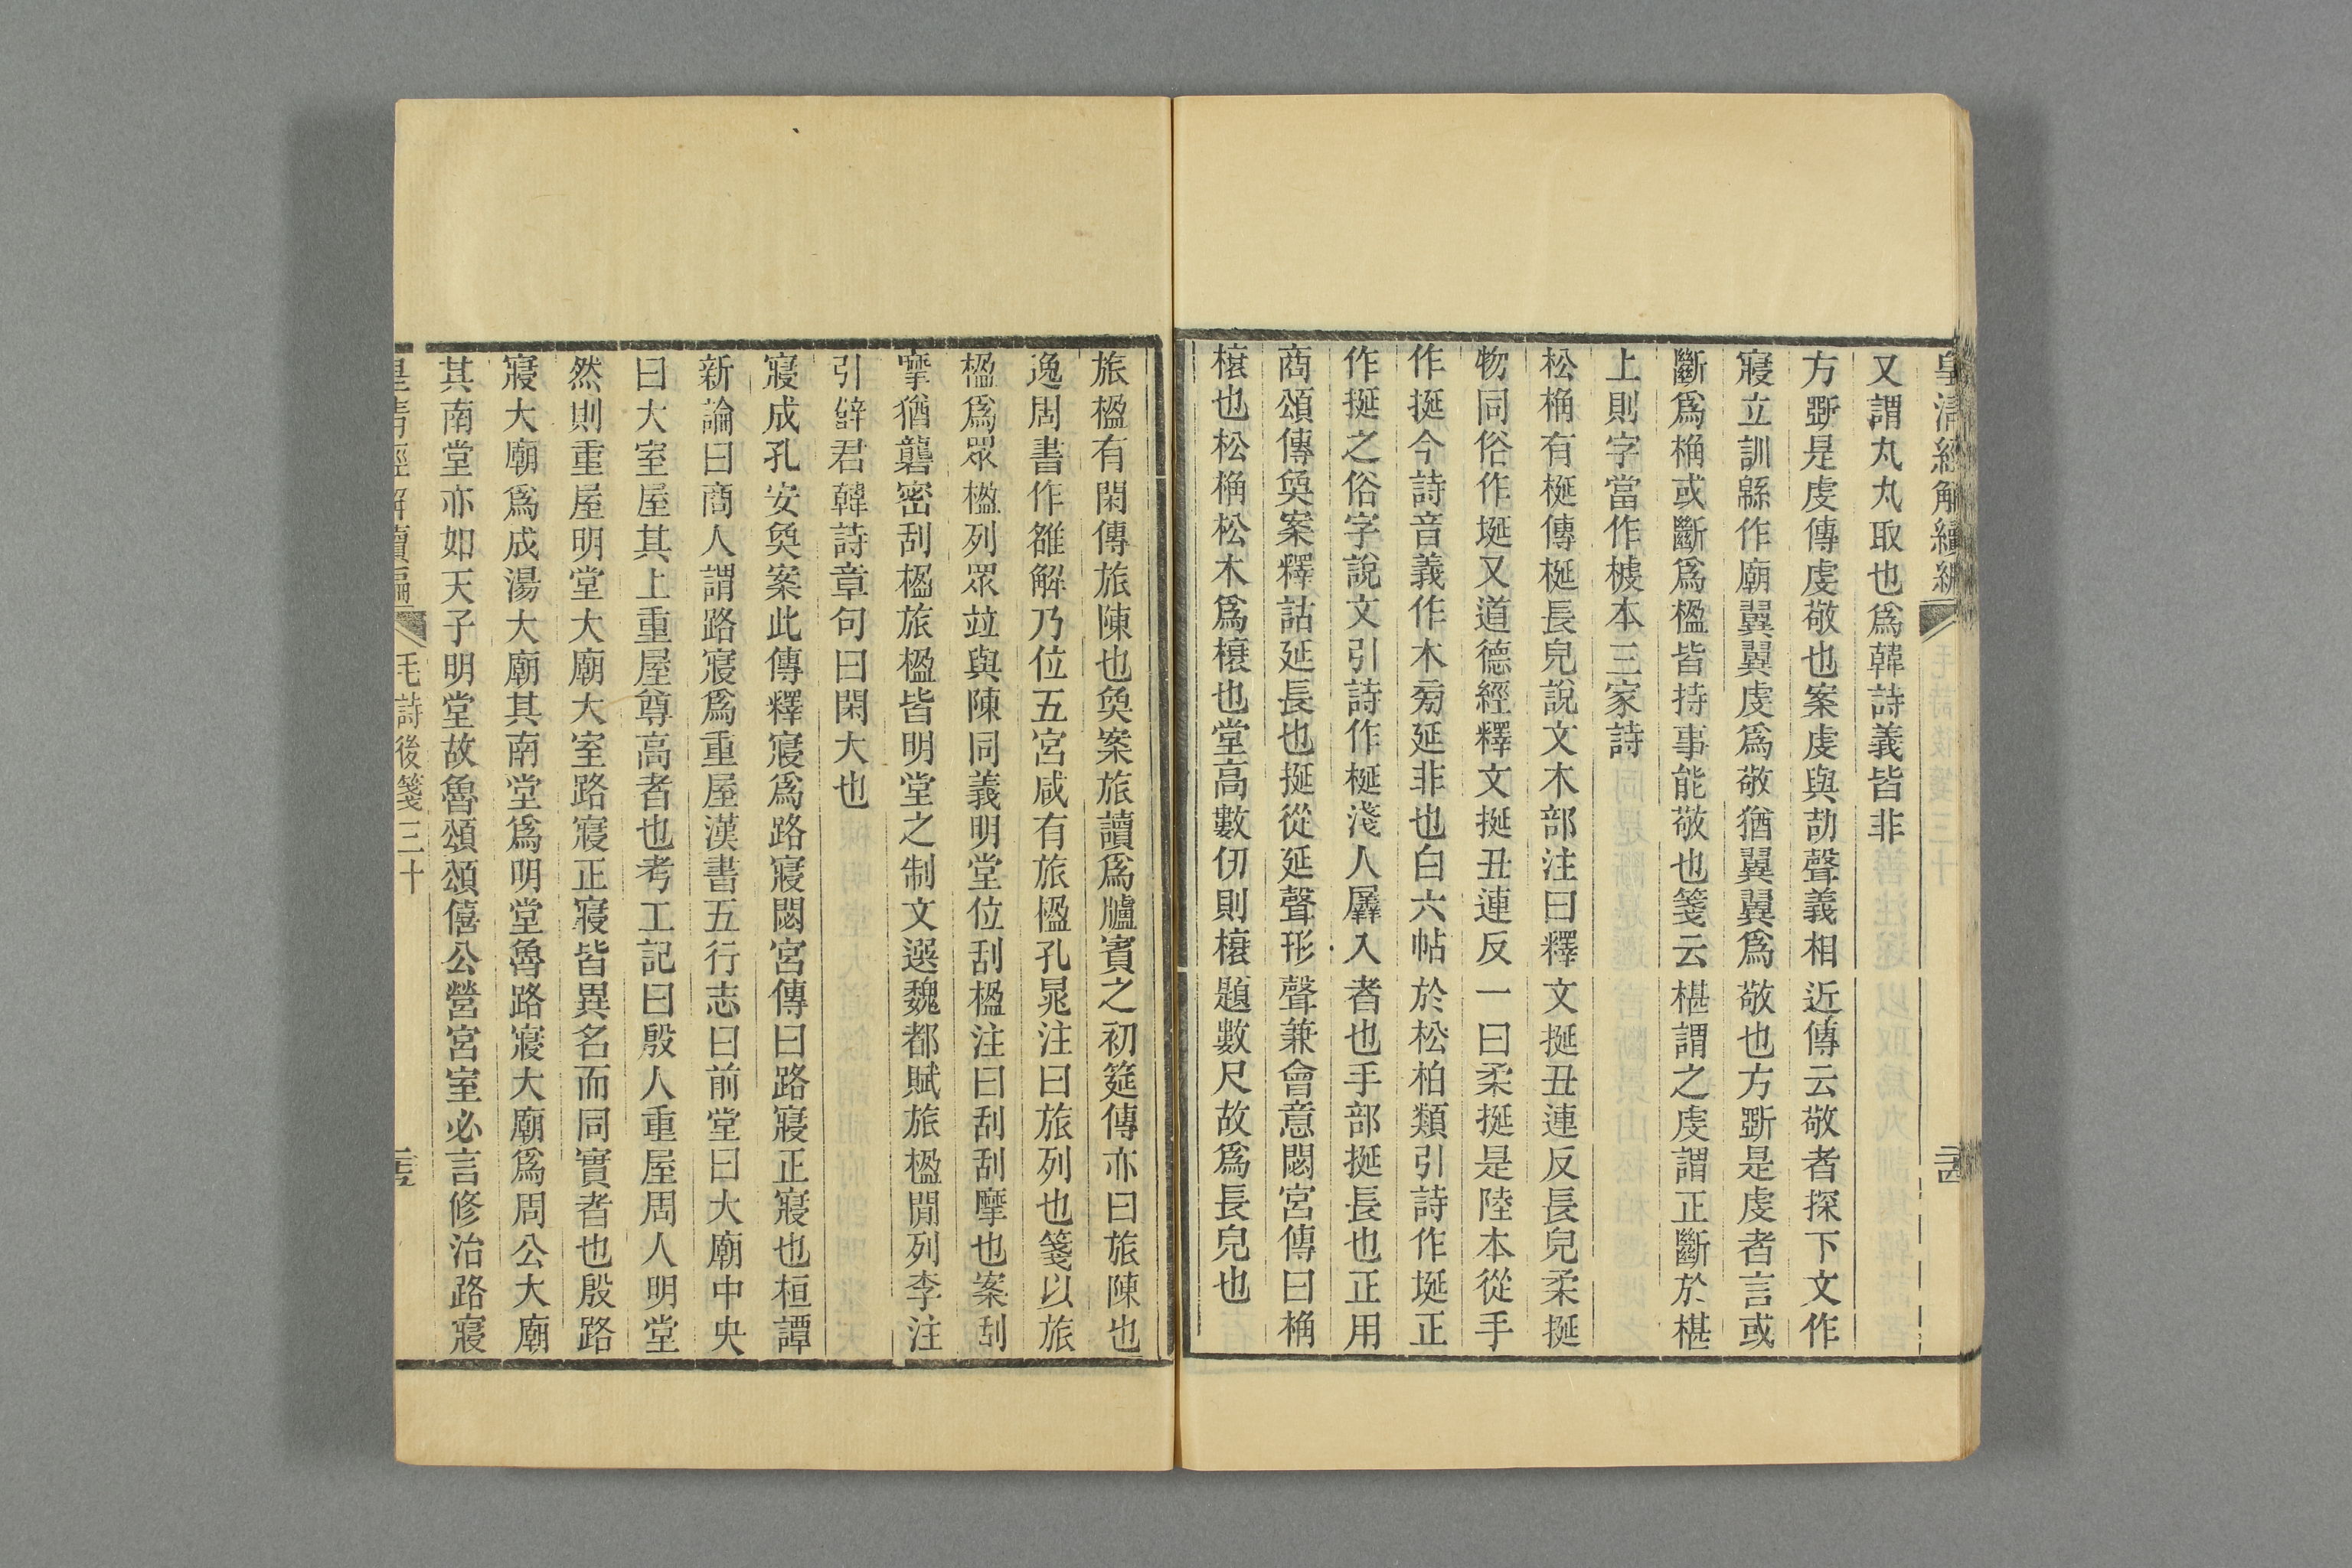 皇清經解續編
三茜
又謂丸丸取也爲韓詩義皆非
方斲是虔傳虔敬也案虔與劼聲義相近傳云敬者探下文作
寢立訓緜作廟翼翼虔爲敬猶翼翼爲敬也方斲是虔者言或
斷爲桷或斷爲楹皆持事能敬也箋云椹謂之虔謂正斷於椹
上則字當作榩本三家詩
松桷有梴傳梴長皃說文木部注曰釋文挻丑連反長皃柔挻
物同俗作埏又道德經釋文挻丑連反一曰柔挻是陸本從手
作挻今詩音義作木旁延非也白六帖於松柏類引詩作埏正
作挻之俗字說文引詩作梴淺人羼入者也手部挻長也正用
商頌傳奐案釋詁延長也挻從延聲形聲兼會意閟宮傳曰桷
榱也松桷松木爲榱也堂高數仞則榱題數尺故爲長皃也
旅楹有閑傳旅陳也奐案旅讀爲臚賓之初筵傳亦曰旅陳也
逸周書作雒解乃位五宮咸有旅楹孔晁注曰旅列也箋以旅
楹爲眾楹列眾竝與陳同義明堂位刮楹注曰刮刮摩也案刮
摩猶礱密刮楹旅楹皆明堂之制文選魏都賦旅楹閒列李注
引薛君韓詩章句曰閑大也
寢成孔安奐案此傳釋寢爲路寢閟宮傳曰路寢正寢也桓譚
新論曰商人謂路寢爲重屋漢書五行志曰前堂曰大廟中央
曰大室屋其上重屋尊高者也考工記曰殷人重屋周人明堂
然則重屋明堂大廟大室路寢正寢皆異名而同實者也殷路
寢大廟爲成湯大廟其南堂爲明堂魯路寢大廟爲周公大廟
其南堂亦如天子明堂故魯頌頌僖公營宮室必言修治路寢
皇清經解續編
毛詩後箋三十